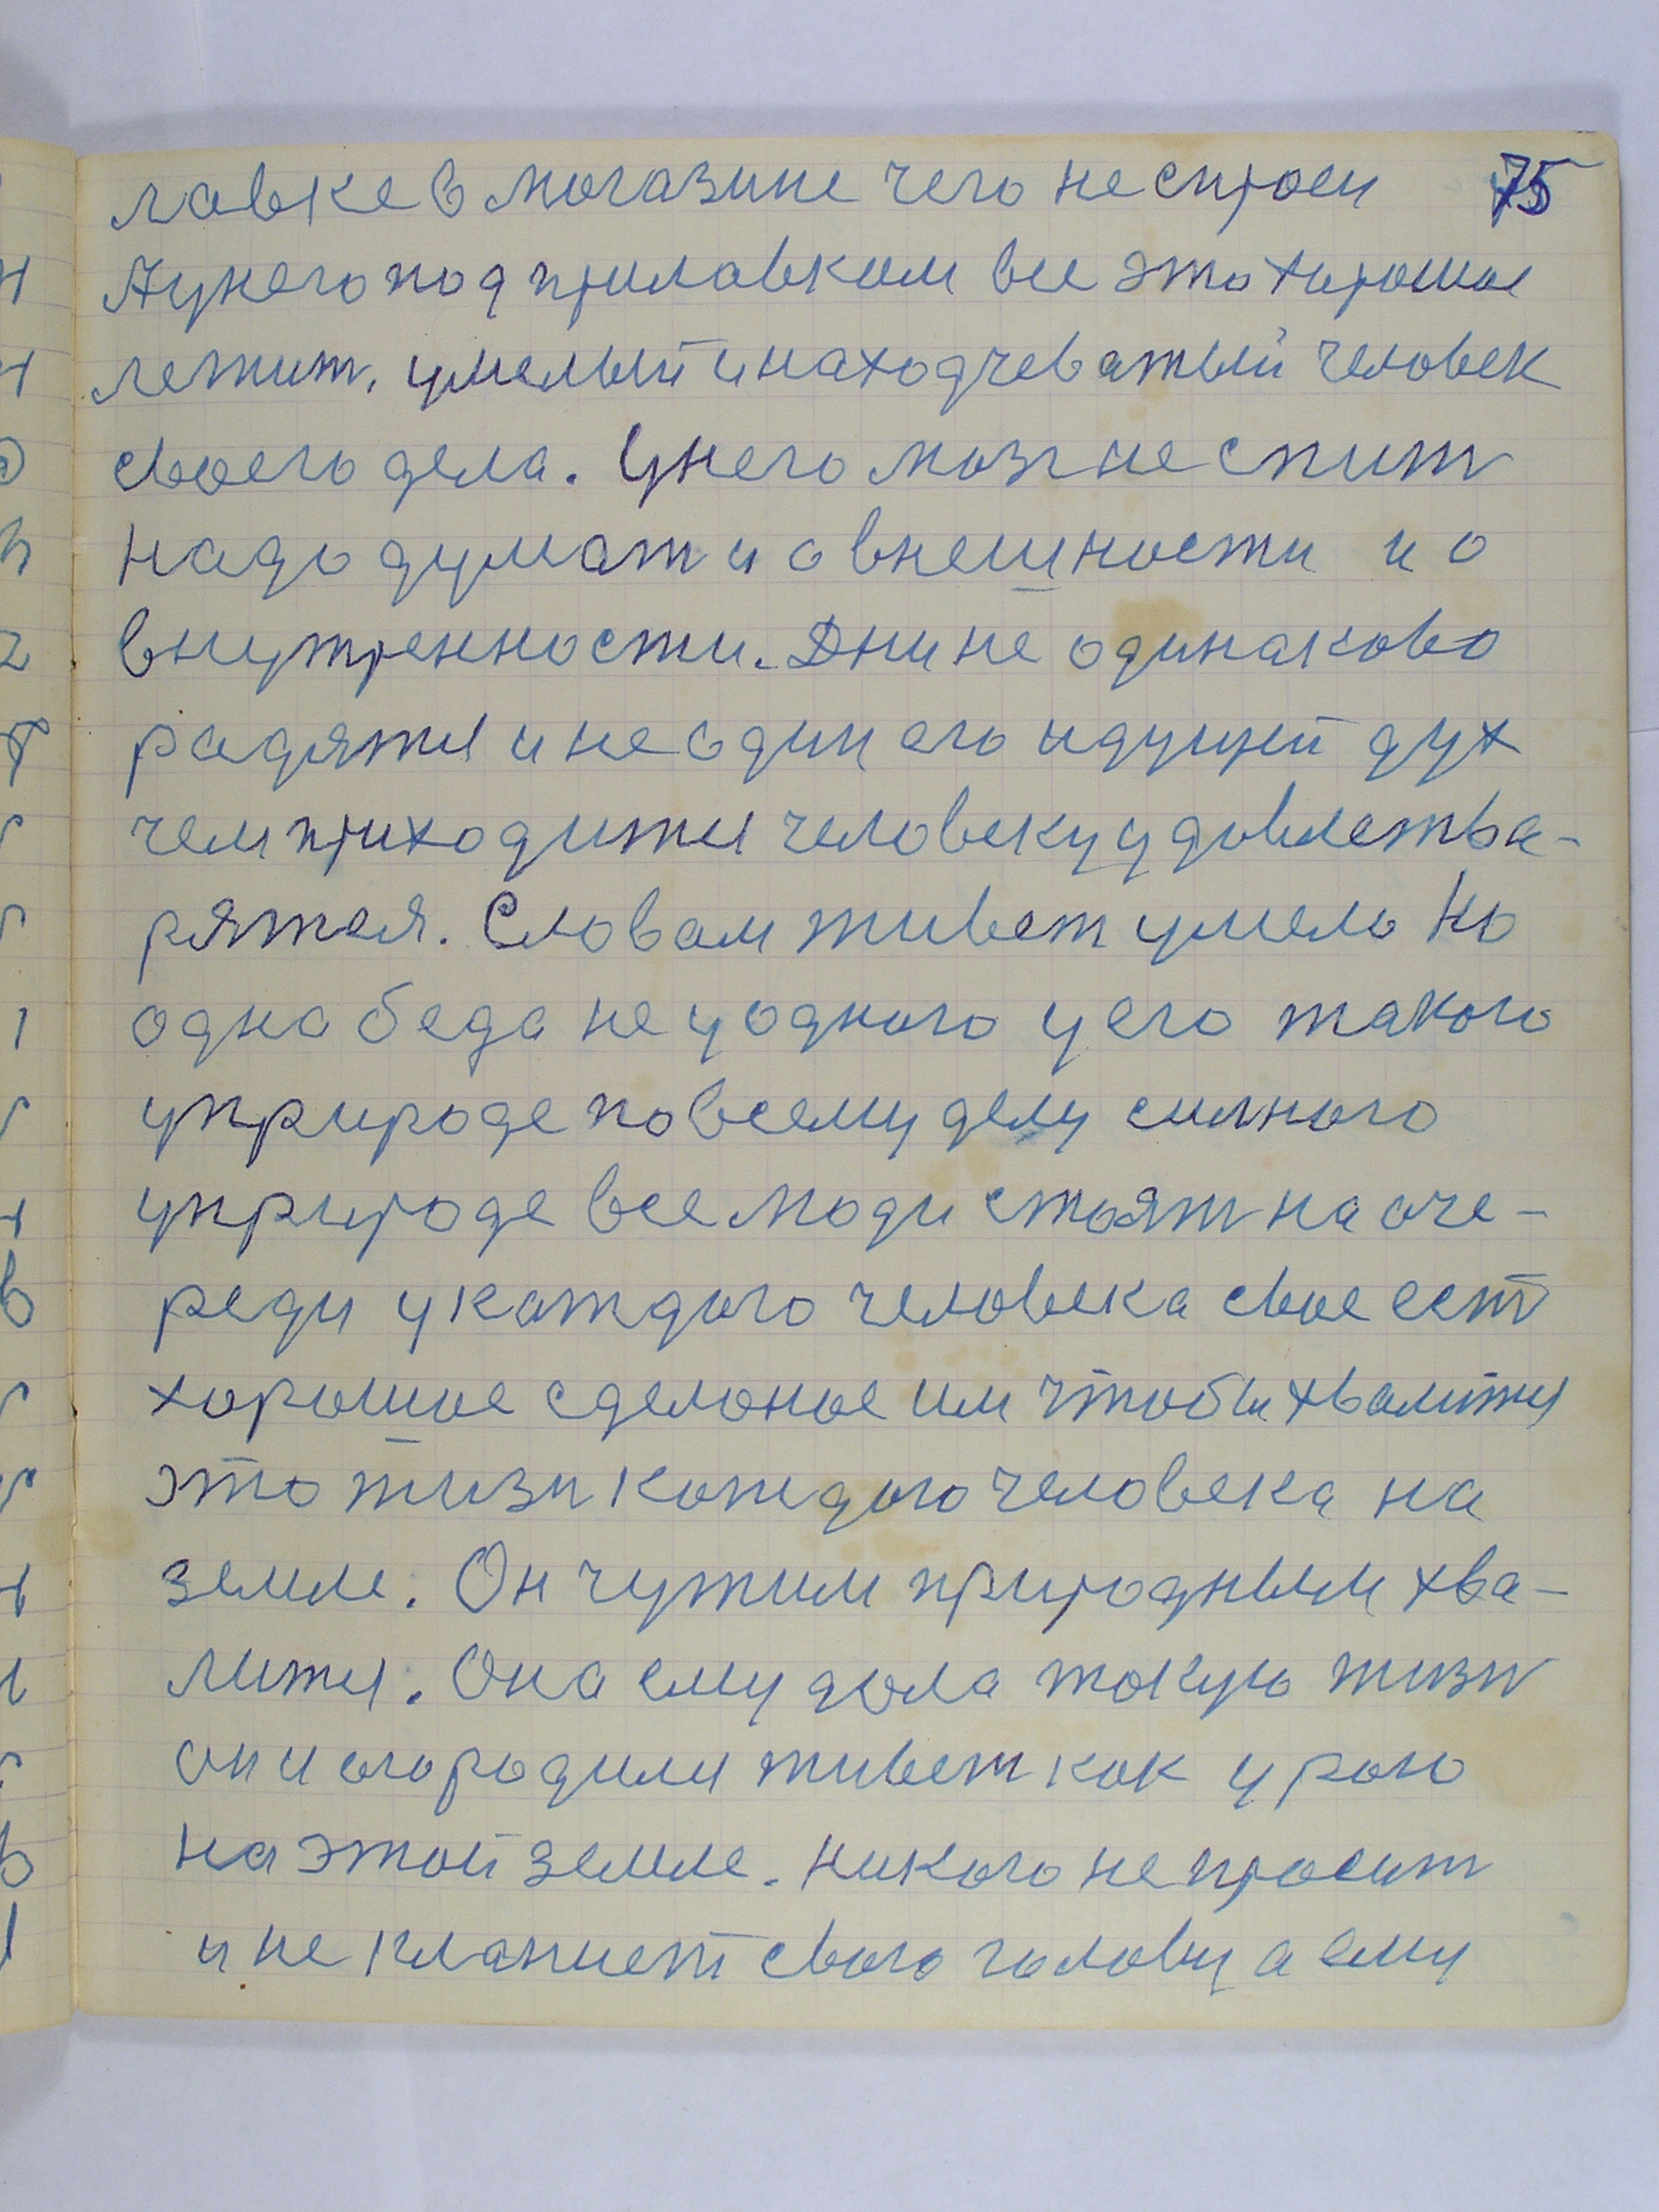 75
лавке в могазине чего не спроси
А у него под прилавком все это хорошое
лежит. умелый и находчеватый человек
своего дела. У него мозг не спит
надо думат и о внешности и о
внутренности. Дни не одинаково
радятся и не один его идущий дух
чем приходится человеку удовлетва-
рятся. Словам живет умело Но
одна беда не у одного у его такого
уприроде по всему делу силного
уприроде все люди стоят на оче-
реди у каждого человека свое ест
хорошое сделоное им чтобы хвалится
это жизн кождого человека на
земле. Он чужим природным хва-
лится. Она ему дала такую жизн
он и его родили живет как у раю
на этой земле. никого не просит
и не клапнет свою голову а ему